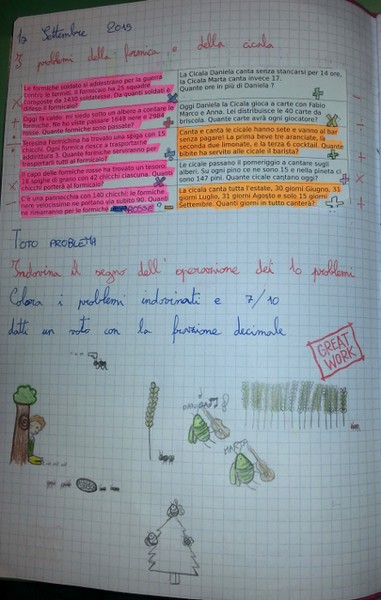 Settembre 2015
I problemi della formica e della cicala
Le formiche soldato si addestrano per la guerra
contro le termiti. Il formicaio ha 25 squadre
composte da 1430
difeso il formicaio?
La Cicala Daniela canta senza stancarsi per 14 ore,
la Cicala Marta canta invece 17.
Quante ore in più di Daniela ?
Qua la conta: mi siedo sotto un albero a contare le
formiche. Ne ho viste passare 1648 nere e 2984
rosse. Quante formiche sono passate?
Oggi Daniela la Cicala gioca a carte con Fabio
Marco e Anna. Lei distribuisce le 40 carte da
briscola. Quante carte avrà ogni giocatore?
Teresina Formichina ha trovato una spiga con 15
chicchi. Ogni formica riesce a trasportarne
addirittura 3. Quante formiche serviranno per
trasportarli tutti al formicaio?
Canta e canta le cicale hanno sete e vanno al bar
senza pagare. La prima beve tre aranciate, la
seconda due limonate, e la terza 6 cocktail. Quante
bibite ha servito alle cicale il barista?
Il capo delle formiche rosse ha trovato un tesoro:
18 spighe di grano con 42 chicchi ciascuna. Quanti
chicchi porterà al formicaio?
Le cicale passano il pomeriggio a cantare sugli
alberi. Su ogni pino ce ne sono 15 e nella pineta ci
sono 147 pini. Quante cicale cantano oggi?
C'è una pannocchia con 140 chicchi; le formiche
nere velocissime ne portano via subito 90. Quanti
ne rimarranno per le formiche ROSSE?
La cicala canta tutta l'estate, 30 giorni Giugno, 31
giorni Luglio, 31 giorni Agosto e solo 15 giorni
Settembre. Quanti giorni in tutto canterà?
TOTO PROBLEMA
Indovina il segno dell'operazione dei 10 problemi
Colora i problemi indovinati e 7/10
datti un voto con la frazione decimale
GREAT
WORK
MARTA